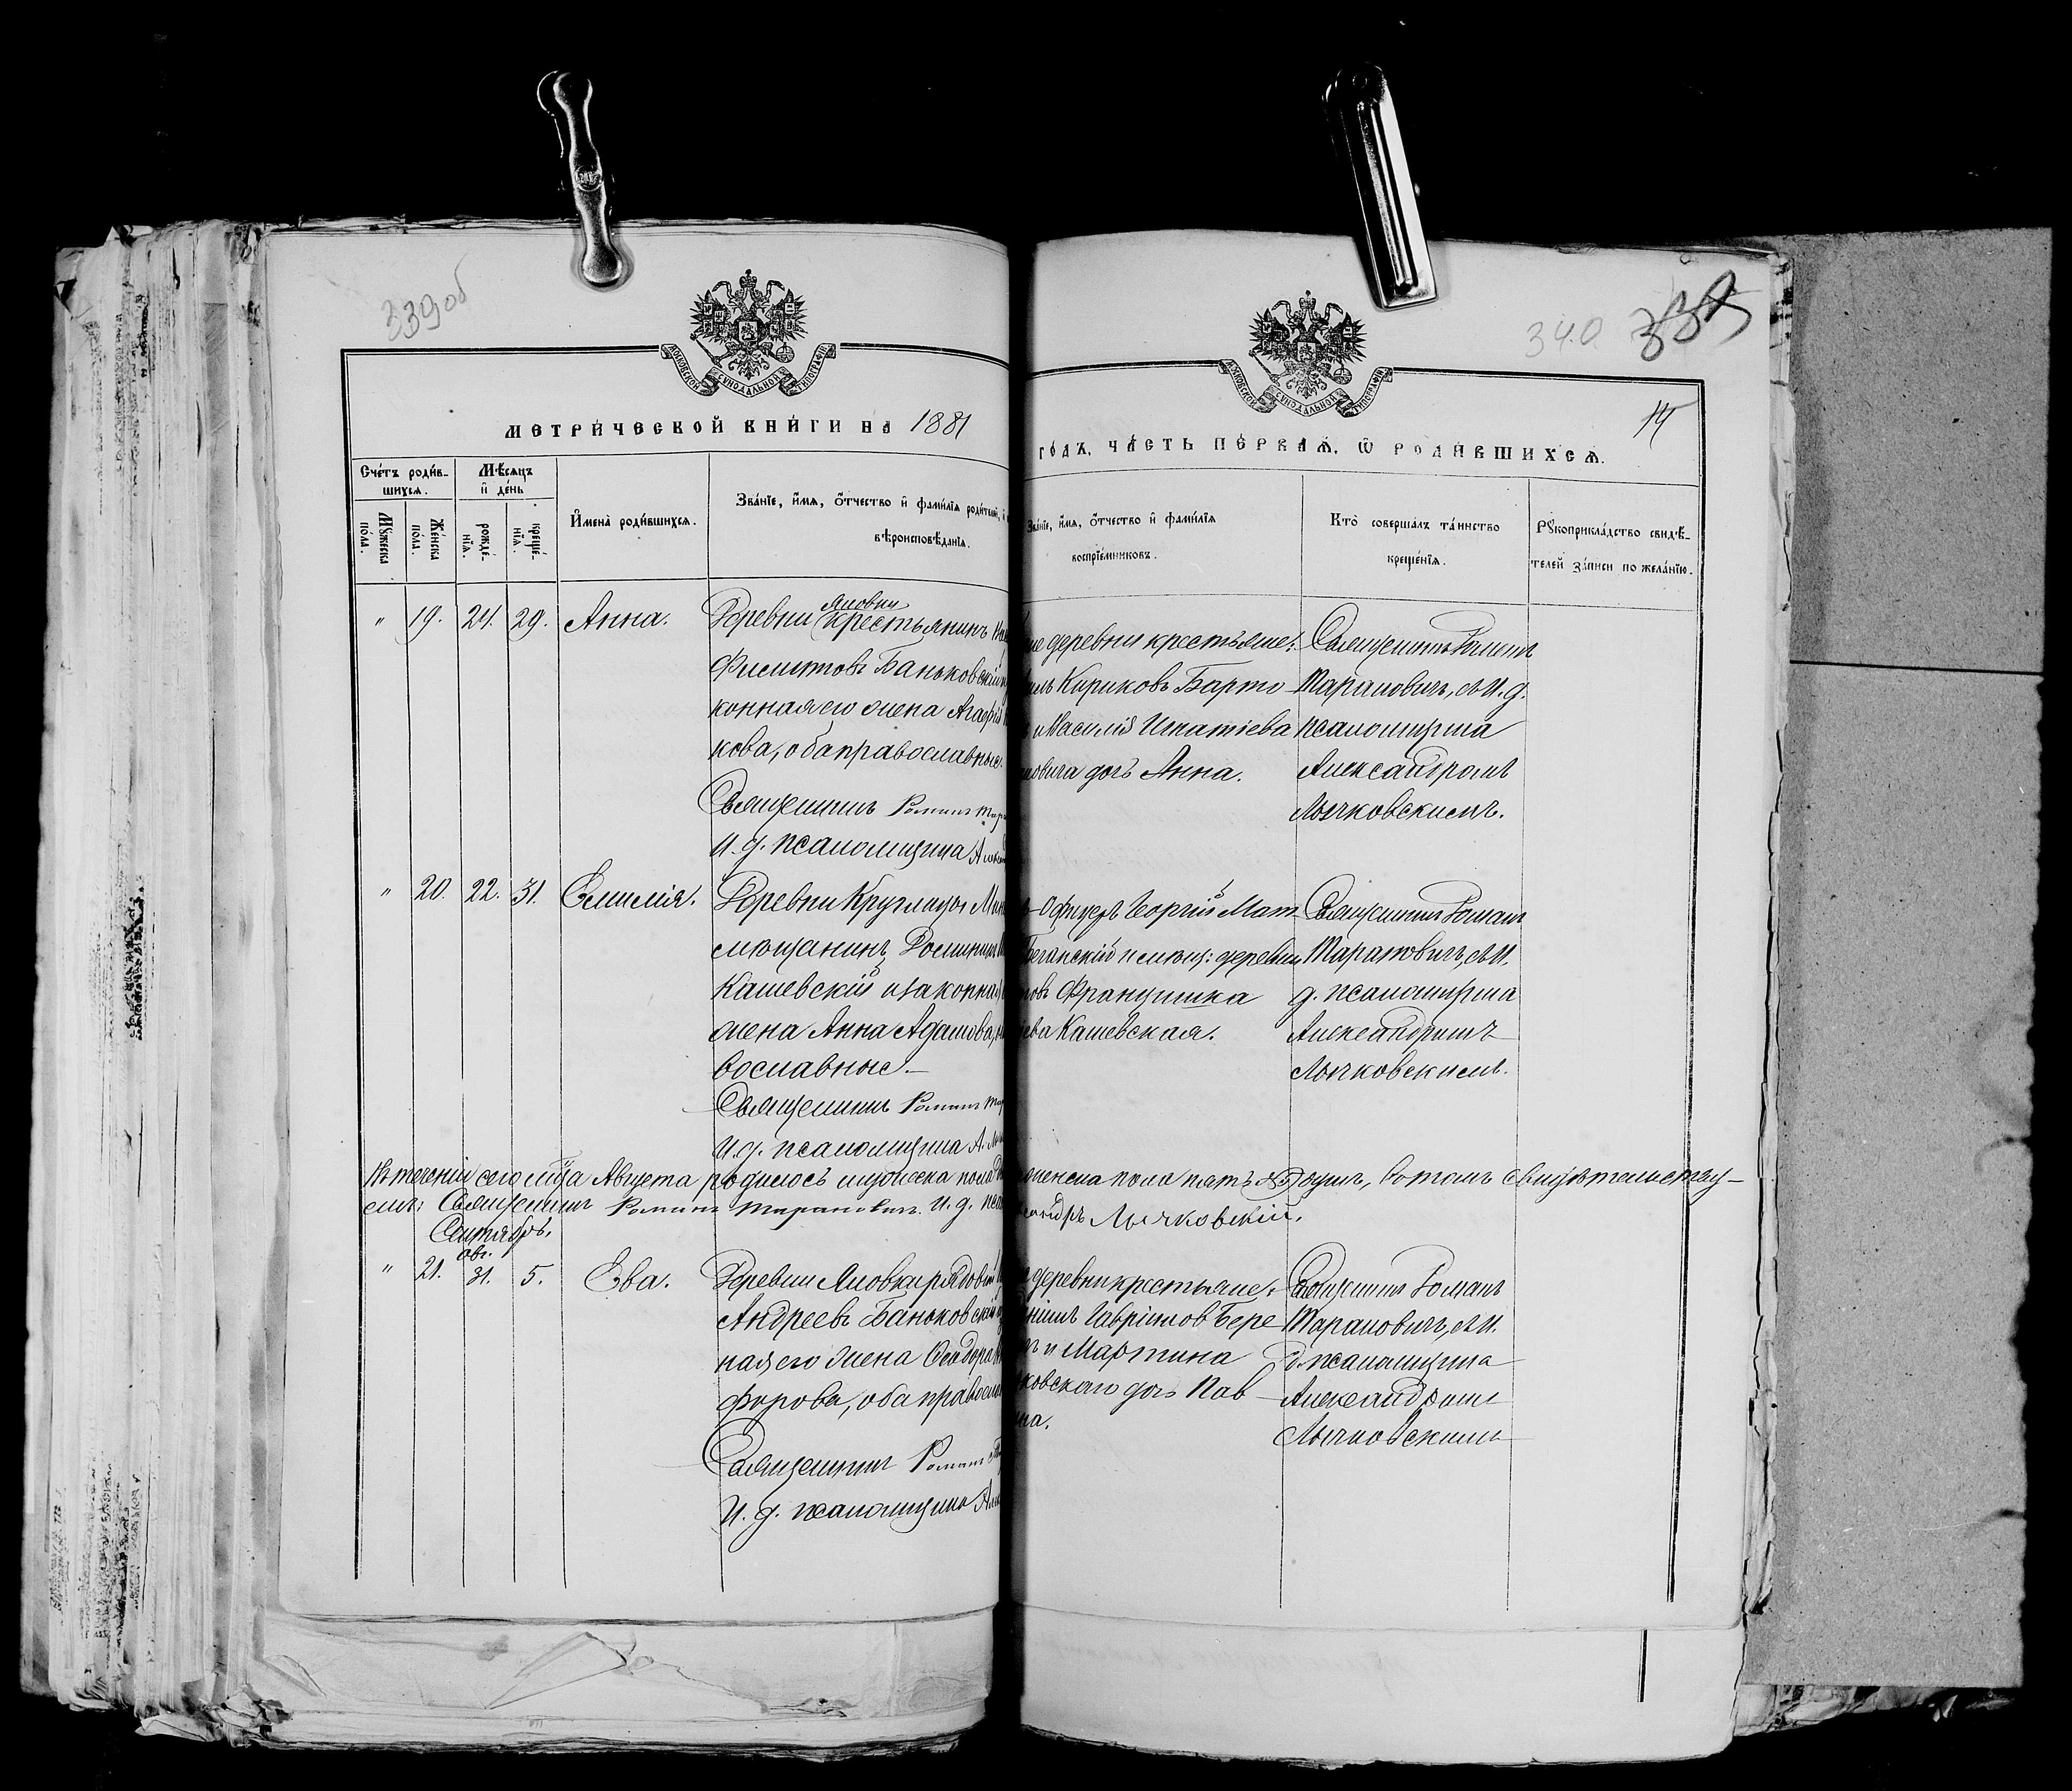 339об
340
339
14
МОСКОВСКОЙ СѴНОДАЛЬНОЙ ТИПОГРАФІИ
МОСКОВСКОЙ СѴНОДАЛЬНОЙ ТИПОГРАФІИ
МЕТРИЧЕСКОЙ КНИГИ НА 1881
ГОДЪ, ЧАСТЬ ПЕРВАЯ, Ѡ РОДИВШИХСЯ.
Счетъ родив-
шихся.
Мѣсяцъ
и день
Мꙋжеска
пола.
Женска
пола.
рожде-
нія.
креще-
нія.
Имена родившихся.
Званіе, имя, отчество и фамилія родителей, и
вѣроисповѣданія.
Званіе, имя, отчество и фамилія
воспріемниковъ.
Кто совершалъ таинство
крещенія.
Рꙋкоприкладство свидѣ-
телей записи по желанію.
" 19. 24. 29. Анна.
Яновки
Деревни крестьянинъ
Филиповъ Баньковскій
конная его жена Агафія
кова, оба православные.
Священникъ Романъ
И. д. псаломщика
же деревни крестьяне:
Кириковъ Барто-
и Василія Игнатіева
овича дочь Анна.
Священникъ Романъ
Тарановичъ, съ И. д.
псаломщика
Александромъ
Лычковскимъ.
" 20. 22. 31. Емилія.
Деревни Круглицы
мѣщанинъ
Кашевскій и законная
жена Анна Адамова,
вославные.
Священникъ Романъ
И. д. псаломщика А.
Офицеръ Георгій Мат-
и мѣщ: деревни
Францишка
ева Кашевская.
Священникъ Романъ
Тарановичъ, съ И.
д. псаломщика
Александромъ
Лычковскимъ.
Въ теченіи сего мѣсяца Августа родилось мужеска пола
женска пола пять душъ, въ томъ свидѣтельству-
емъ: Священникъ Романъ Тарановичъ. И. д.
Лычковскій.
Сентябрь.
Авг.
" 21. 31. 5. Ева.
Деревни Яновки рядовой
Андреевъ Баньковскій
ная его жена Ѳеодора
форова, оба правосла
Священникъ Романъ
И. д. псаломщика
деревни крестьяне:
Гавріиловъ Бере-
и Мартина
ковскаго дочь Пав-
на.
Священникъ Романъ
Тарановичъ, съ И.
д. псаломщика
Александромъ
Лычковскимъ